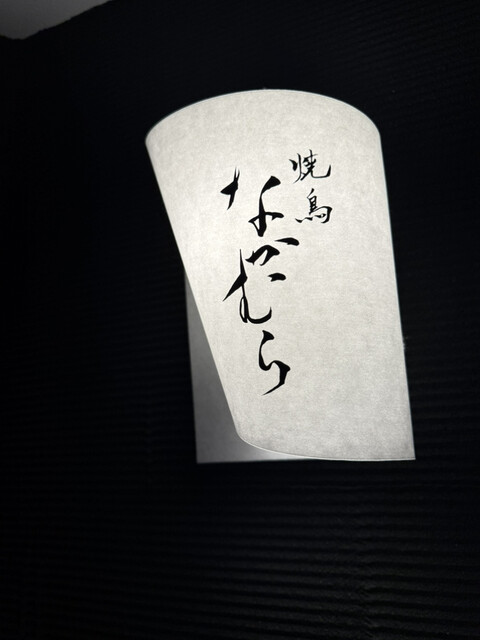 焼鳥
なかむら